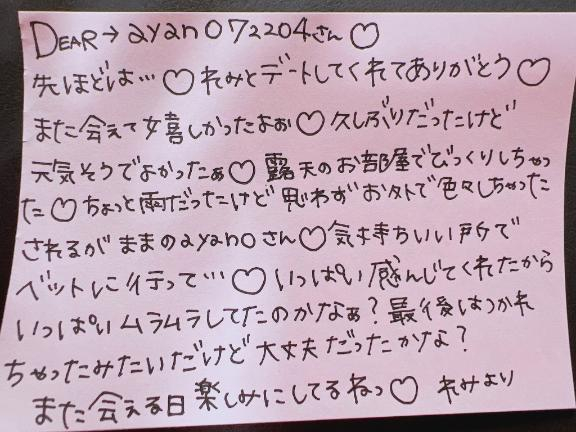 DEAR→ayano072204さん♡
先ほどは…♡れみとデートしてくれてありがとう♡
また会えて嬉しかったよぉ♡久しぶりだったけど
元気そうでよかったぁ♡露天のお部屋でびっくりしちゃっ
た♡ちょっと雨だったけど思わずお外で色々しちゃった
されるがままのayanoさん♡気持ちいい所で
ベットに行って…♡いっぱい感んじてくれたから
いっぱいムラムラしてたのかなぁ?最後はつかれ
ちゃったみたいだけど大丈夫だったかな?
また会える日楽しみにしてるねっ♡ れみより